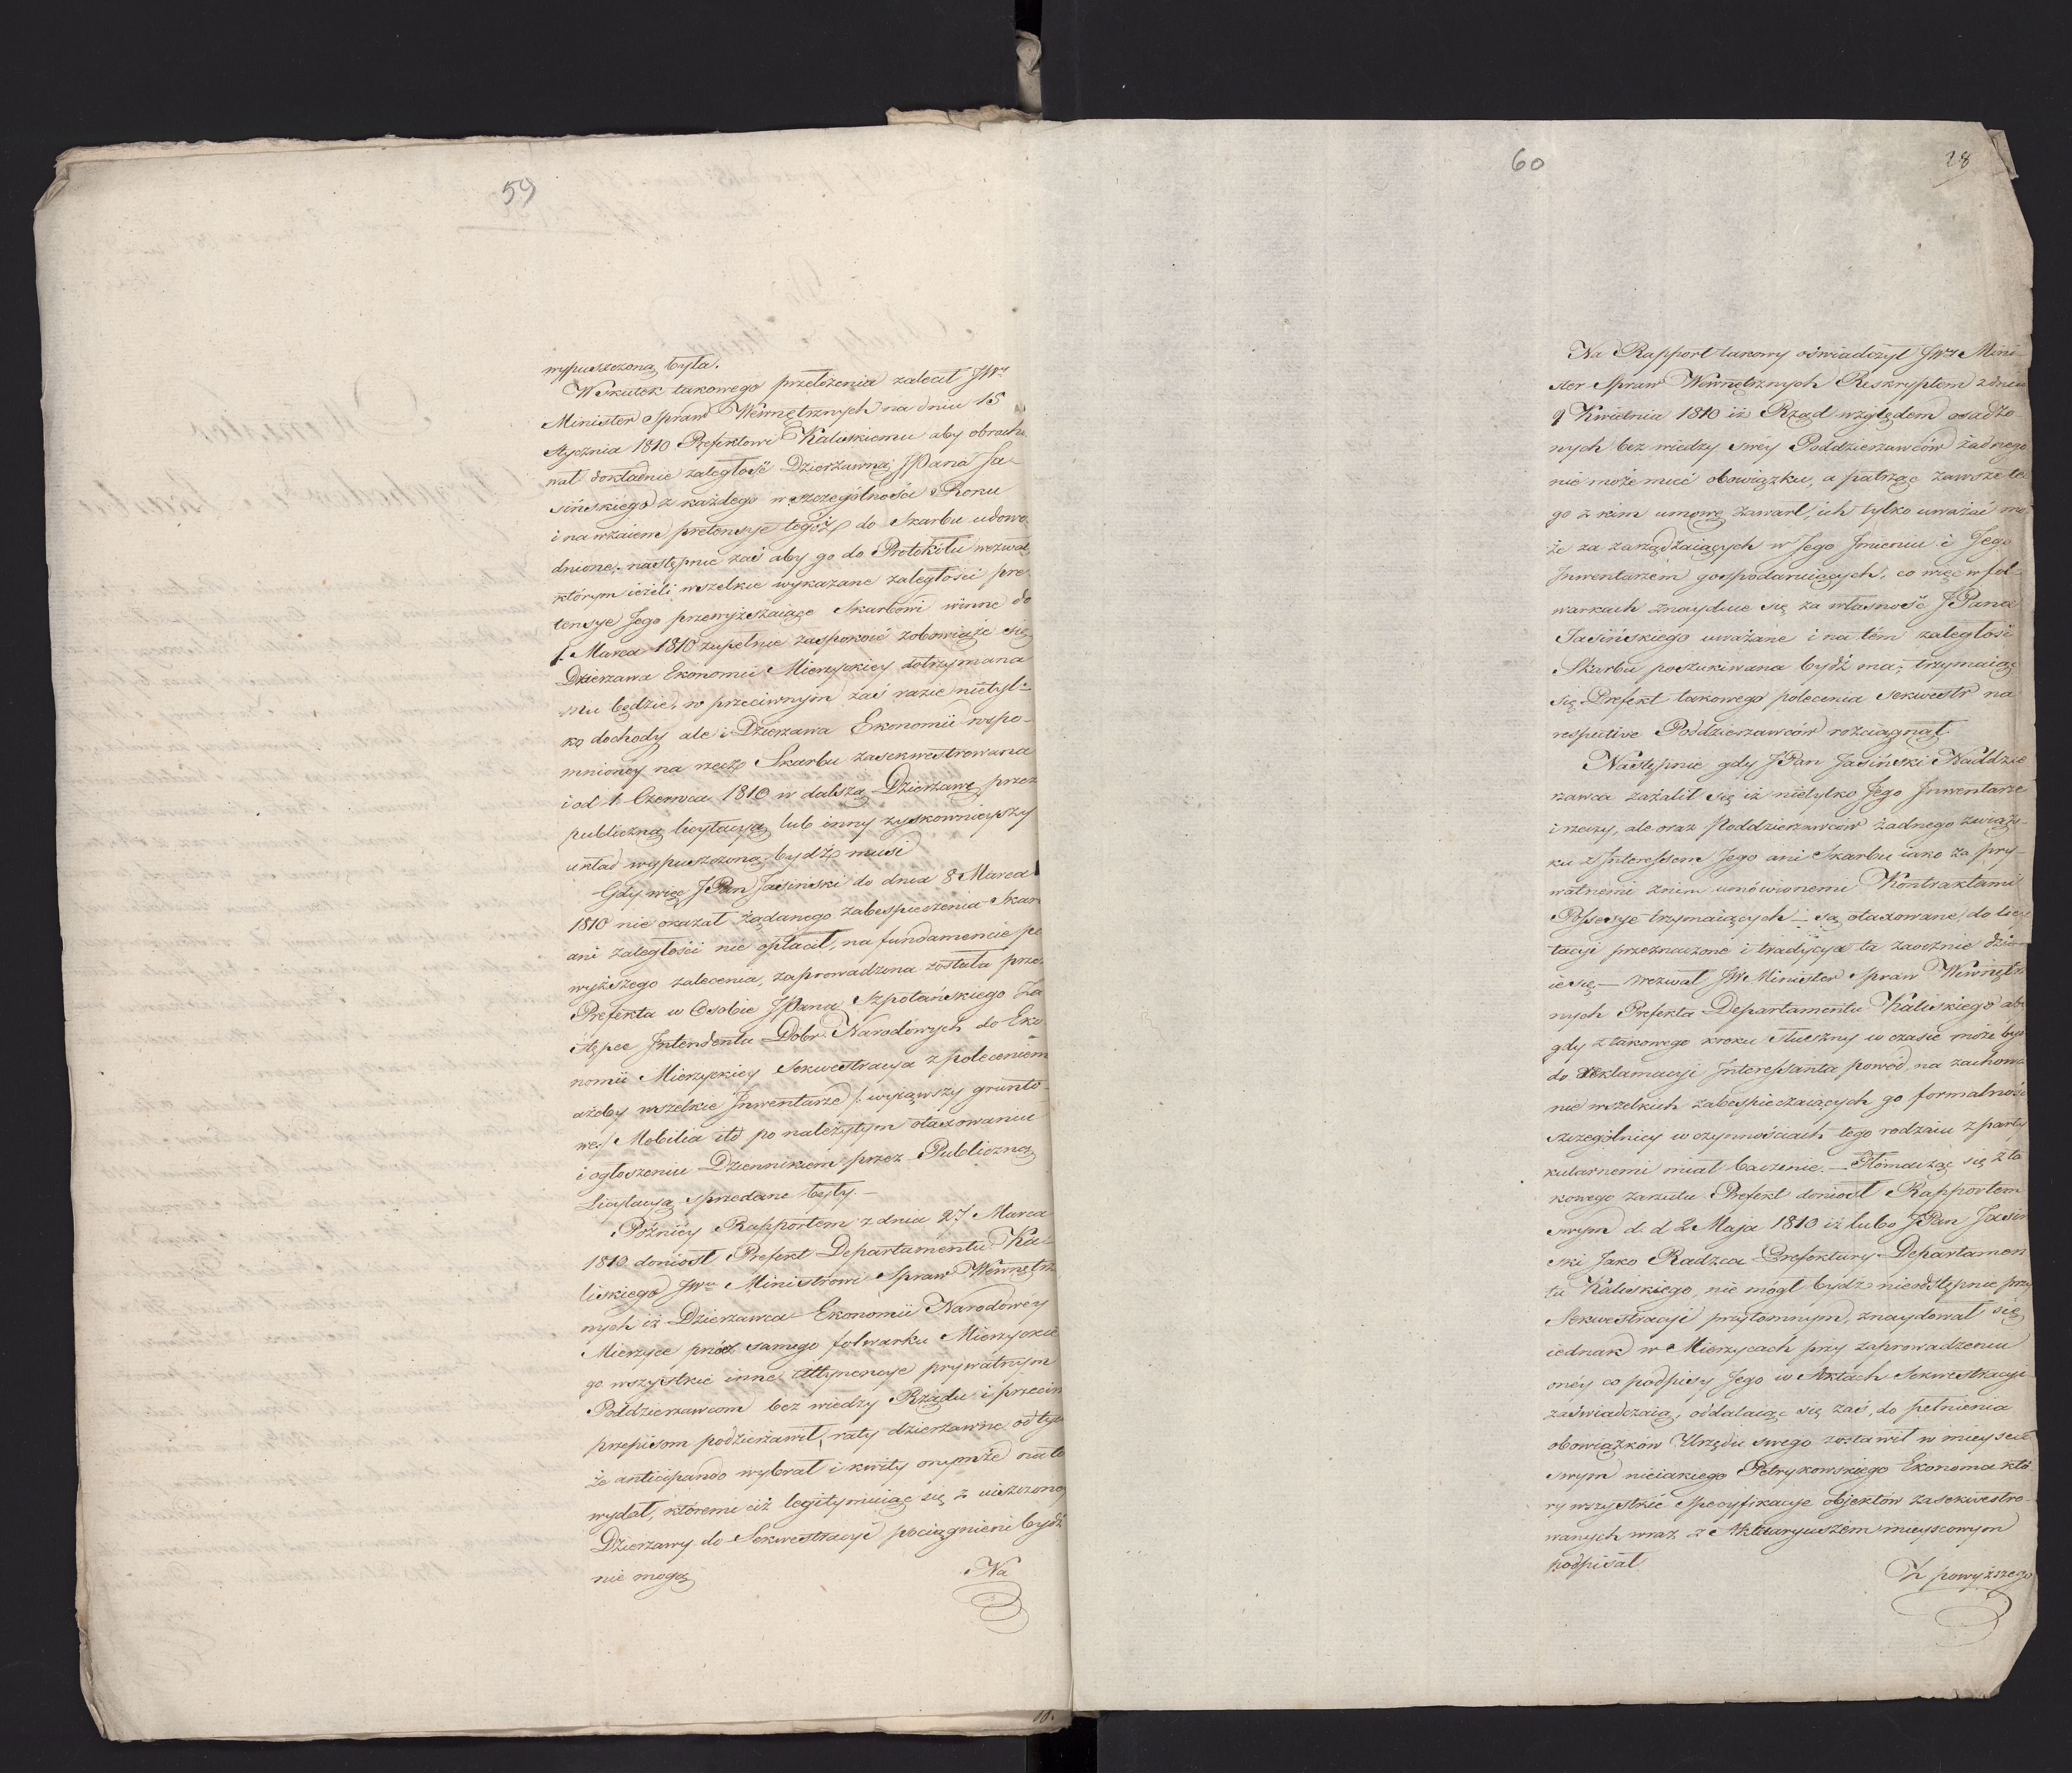 59
wypuszczoną była.
W skutek takowego przełożenia zalecił JWny
Minister Spraw Wewnętrznych na dniu 15
Stycznia 1810 Prefektowi Kaliskiemu aby obracho
wał dokładnie zaległość Dzierżawną JPana Ja-
sińskiego z każdego w szczególności Roku
i nawzaiem pretensye tegoż do Skarbu udowo
dnione, następnie zaś aby go do Protokułu wezwał
którym ieżeli wszelkie wykazane zaległości pre
tensye Jego przewyższaiące Skarbowi winne do
1. Marca 1810 zupełnie zaspokoić zobowiąże się
Dzierzawa Ekonomii Mierzyckiey dotrzymana
mu będzie, w przeciwnym zaś razie nietyl-
ko dochody ale i Dzierzawa Ekonomii wspo-
mnioney na rzecz Skarbu zasekwestrowana
i od 1. Czerwca 1810 w dalszą Dzierżawę przez
publiczną licytacyą lub inny zyskownieyszy
układ wypuszczoną bydź musi
Gdy więc JPan Jasiński do dnia 8 Marca
1810 nie okazał żądanego zabespieczenia Skar
ani zaległości nie opłacił, na fundamencie po
wyższego zalecenia, zaprowadzona została przez
Prefekta w Osobie JPana Szpotańskiego Za
stępce Intendenta Dobr Narodowych do Eko
nomii Mierzyckiey Sekwestracya z poleceniem
ażeby wszelkie Inwentarze /: wyiąwszy grunto
we :/ Mobilia itd po należytym otaxowaniu
i ogłoszeniu Dziennikiem przez Publiczną
Licytacyą sprzedane były.—
Późniey Rapportem z dnia 27 Marca
1810 doniosł Prefekt Departamentu Ka-
liskiego JWmu Ministrowi Spraw Wewnętrz
nych iż Dzierzawca Ekonomii Narodowéy
Mierzyce prócz samego folwarku Mierzyckie
go wszystkie inne Attynencye prywatnym
Poddzierzawcom bez wiedzy Rządu i przeciw
przepisom podzierżawił, raty dzierżawne od tych
że anticipando wybrał i kwity onymże na to
wydał, któremi ciż legitymuiąc się z uiszczoney
Dzierzawy do Sekwestracyi pociągnieni bydź
nie mogą
Na
10.
60
28
Na Rapport takowy oświadczył JWny Mini-
ster Spraw Wewnętrznych Reskryptem z dnia
9 Kwietnia 1810 iż Rząd względem osadzo-
nych bez wiedzy swéy Poddzierzawców żadnego
nie może mieć obowiązku, a patrząc zawsze te
go z kim umowę zawarł, ich tylko uważać mo
że za zarządzaiących w Jego Imieniu i Jego
Inwentarzem gospodaruiących, co więc w fol-
warkach znayduie się za własność JPana
Jasińskiego uważane i na tém zaległość
Skarbu poszukiwana bydź ma; trzymaiąc
się Prefekt takowego polecenia sekwestr na
respective Poddzierzawców rozciągnął.
Następnie gdy JPan Jasiński Naddzie
rzawca zażalił się iż nietylko Jego Inwentarze
i rzeczy, ale oraz Poddzierzawców żadnego związ-
ku z Interessem Jego ani Skarbu iako za pry-
watnemi z nim umówionemi Kontraktami
Possesye trzymaiących — są otaxowane, do licy
tacyi przeznaczone i tradycya ta zaocznie dzia
ie się — wezwał JW Minister Spraw Wewnętrz
nych Prefekta Departamentu Kaliskiego aby
gdy z takowego kroku słuszny w czasie może być
do Reklamacyi Interessanta powód, na zachowa
nie wszelkich zabespieczaiących go formalnośći
szczególniey w czynnościach tego rodzaiu z party
kularnemi miał baczenie.— Tłomacząc się z ta
kowego zarzutu Prefekt doniosł Rapportem
swym d. d 2 Maja 1810 iż lubo JPan Jasiń
ski Jako Radzca Prefektury Departamen
tu Kaliskiego, nie mógł bydź nieodstępnie przy
Sekwestracyi przytomnym, znaydował się
iednak w Mierzycach przy zaprowadzeniu
oney co podpisy Jego w Aktach Sekwestracyi
zaświadczaią, oddalaiąc się zaś, do pełnienia
obowiązków Urzędu swego zostawił w mieyscu
swym nieiakiego Petrykowskiego Ekonoma któ
ry wszystkie specyfikacye objektów zasekwestro
wanych wraz z Aktuaryuszem mieyscowym
podpisał.
Z powyższego